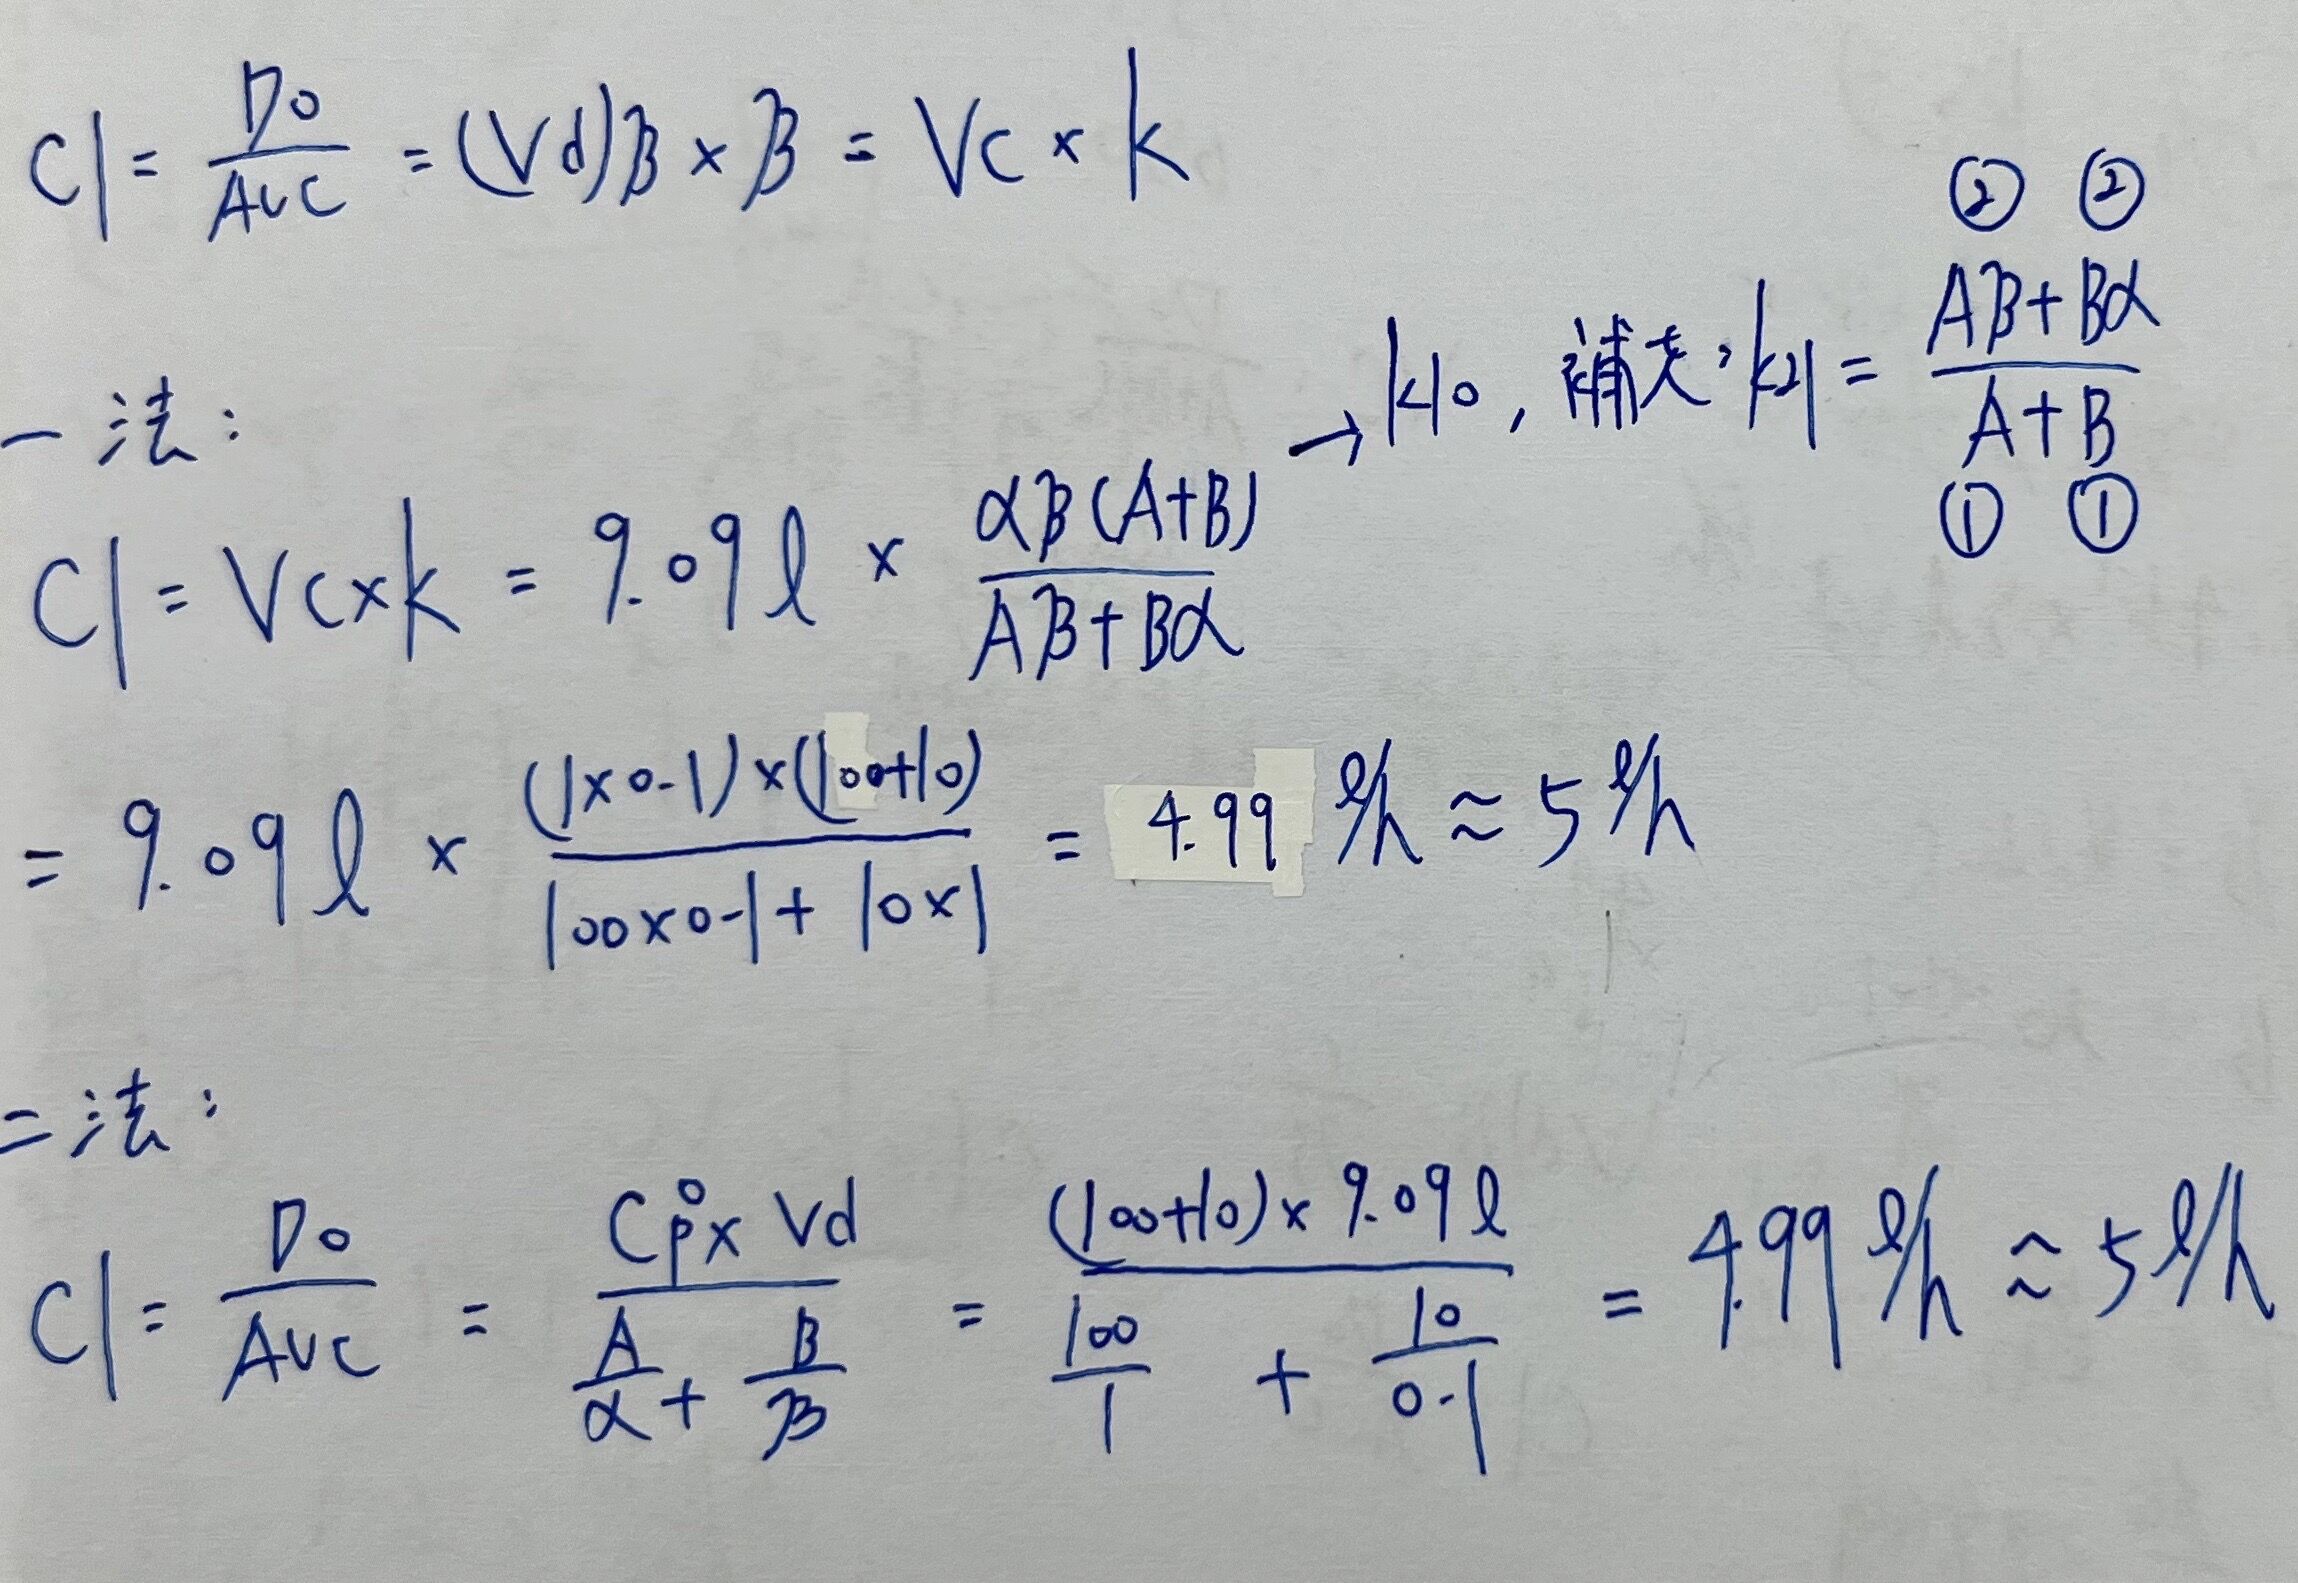 Cl = D0/AUC = (Vd)β × β = Vc × k
② ②
→ k10, 補充:k21 = (Aβ+Bα)/(A+B)
① ①
一法:
Cl = Vc×k = 9.09 l × αβ(A+B)/(Aβ+Bα)
= 9.09 l × (1×0.1)×(100+10)/(100×0.1+10×1) = 4.99 l/h ≈ 5 l/h
二法:
Cl = D0/AUC = Cp°× Vd/(A/α + B/β) = (100+10)× 9.09 l/(100/1 + 10/0.1) = 4.99 l/h ≈ 5 l/h